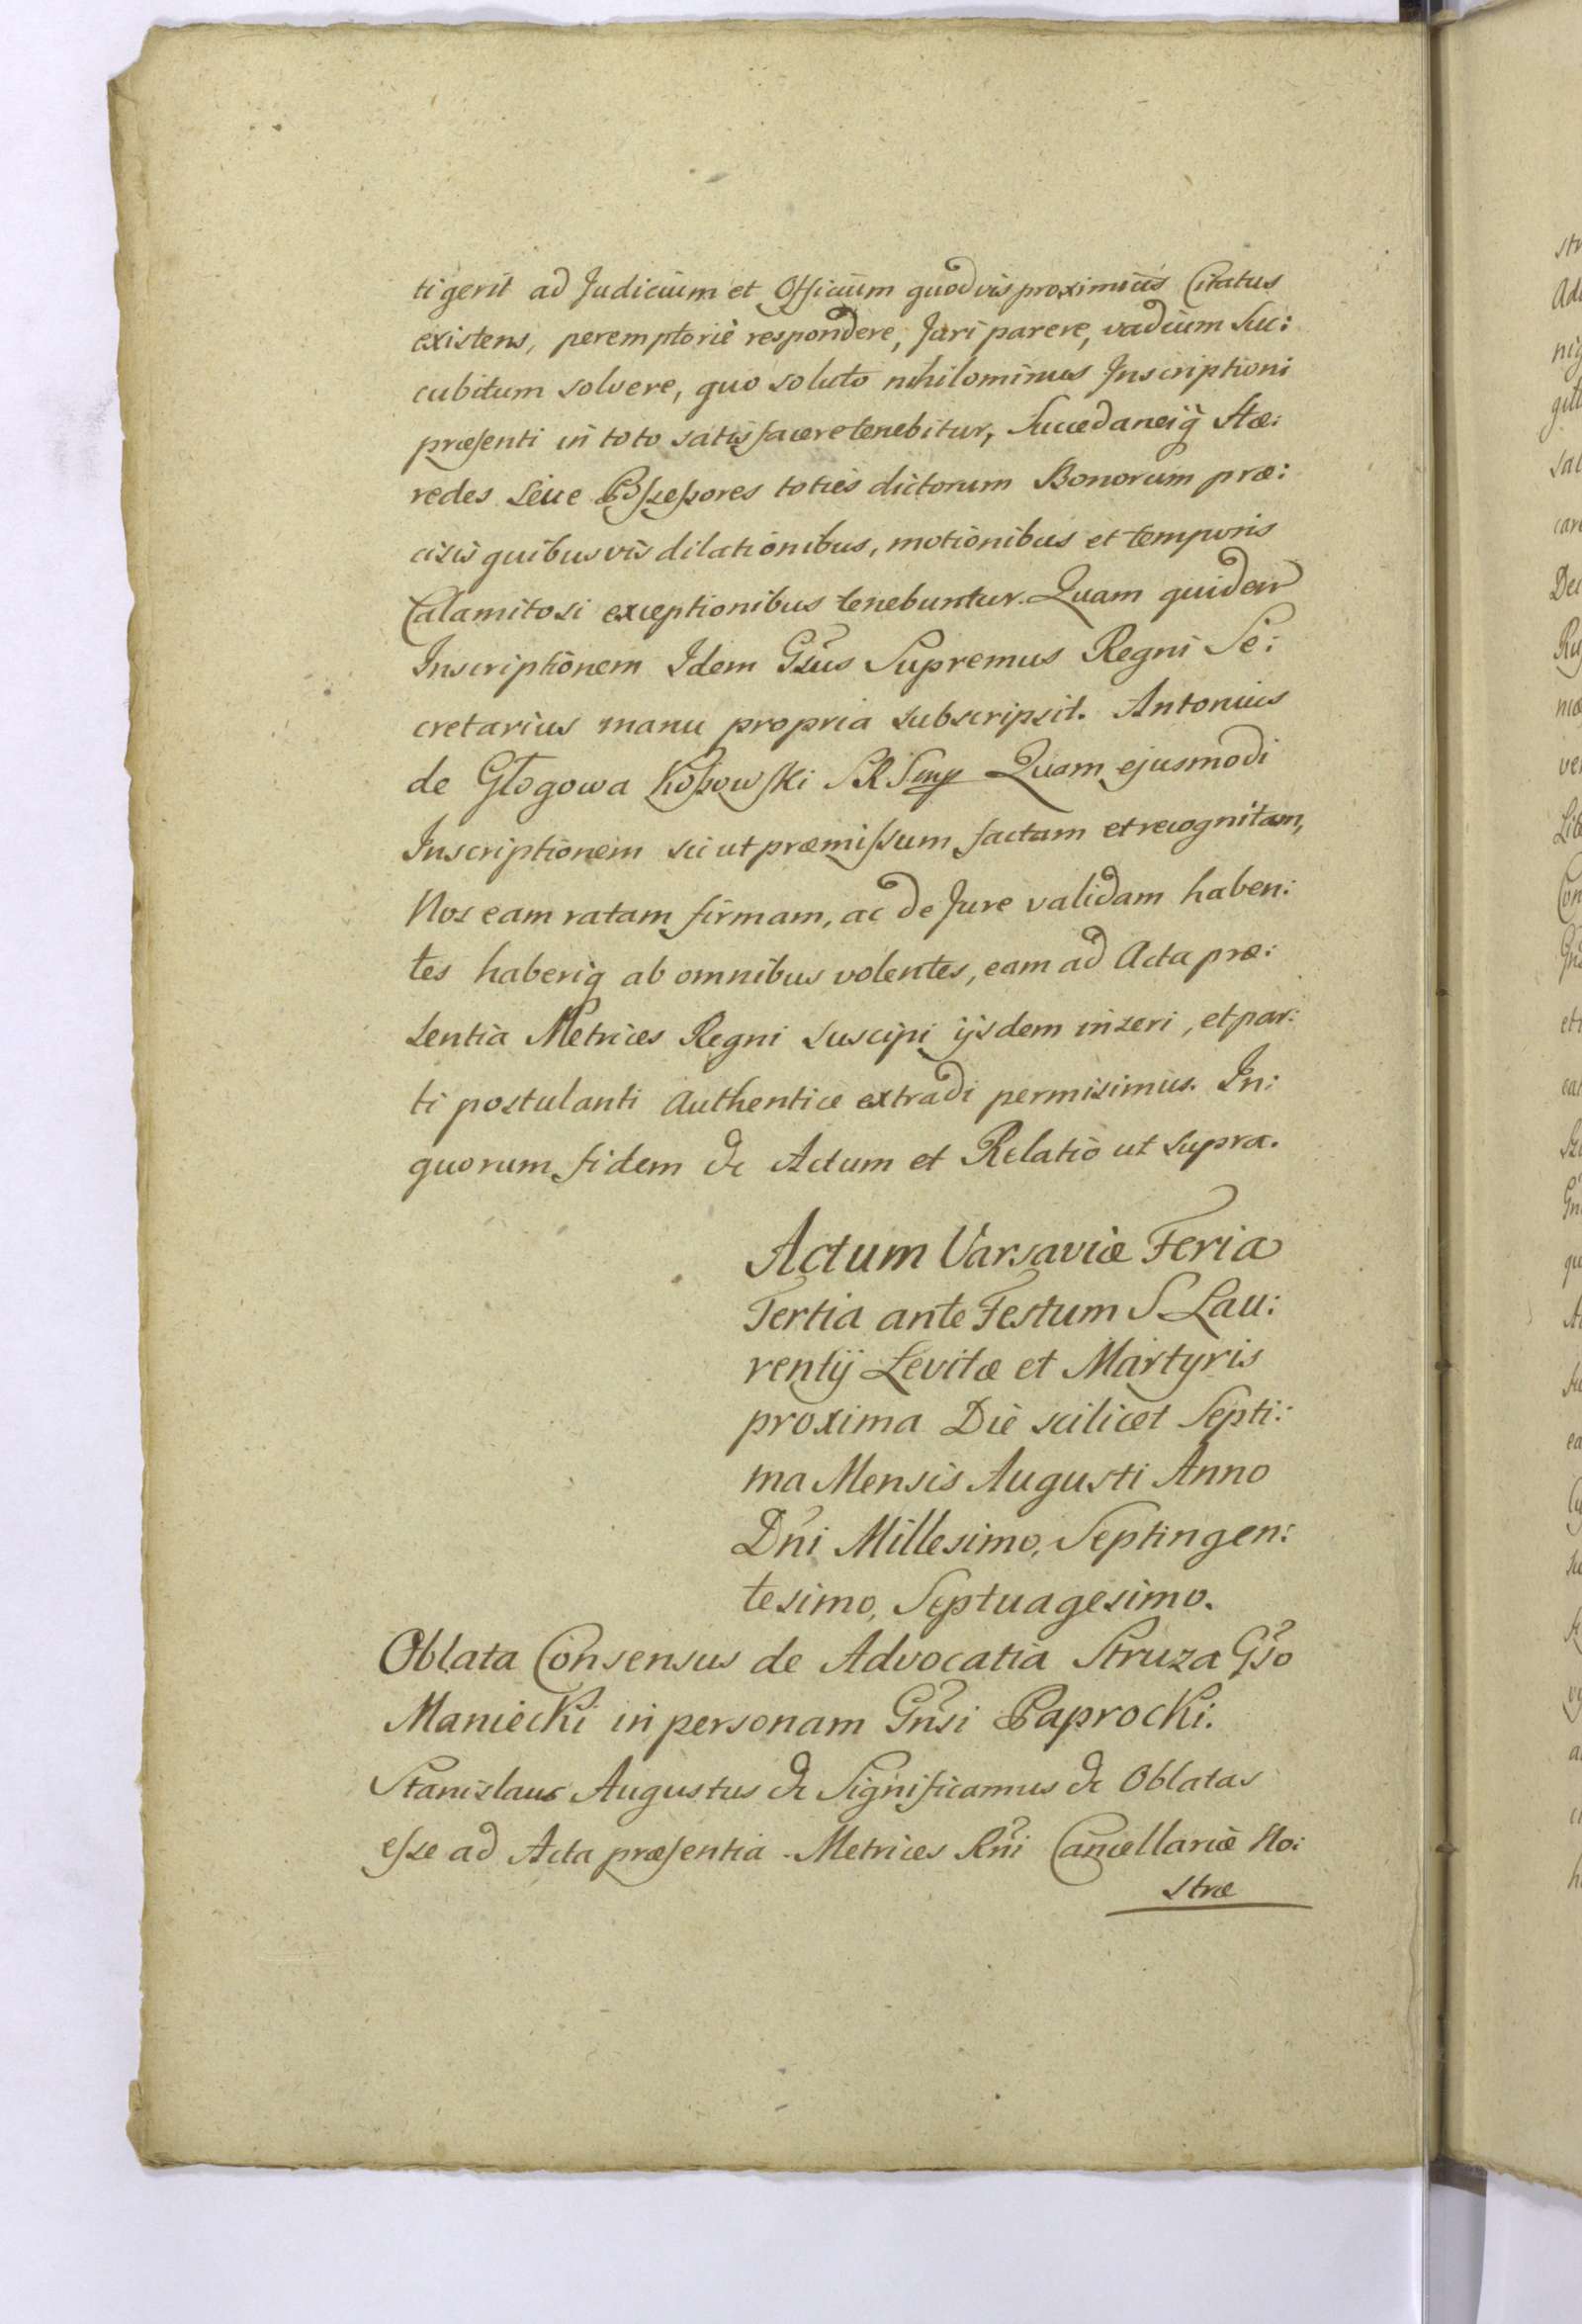 tigerit ad Judicium et Officium quodvis proximius Citatus
existens, peremptorie respondere, Juri parere, vadium suc:
cubitum solvere, quo soluto nihilominus Inscriptioni
præsenti in toto satisfacere tenebitur, succedaneiq̃ Hæ:
redes seue Possessores toties dictorum Bonorum præ:
cisis quibusvis dilationibus, motionibus et temporis
Calamitosi exceptionibus tenebuntur. Quam quidem
Inscriptionem Idem Gsus Supremus Regni Se:
cretarius manu propria subscripsit. Antonius
de Głogowa Kossowski SRS mp Quam ejusmodi
Inscriptionem sic ut præmissum factam et recognitam,
Nos eam ratam firmam, ac de Jure validam haben:
tes haberiq ab omnibus volentes, eam ad Acta præ:
sentia Metrices Regni suscipi ijsdem inseri, et par:
ti postulanti Authentice extradi permisimus. In:
quorum fidem &c Actum et Relatio ut supra.
Actum Varsaviæ Feria
Tertia ante Festum S Lau:
rentij Levitæ et Martyris
proxima Die scilicet Septi:
ma Mensis Augusti Anno
Dñi Millesimo, Septingen:
tesimo, Septuagesimo.
Oblata Consensus de Advocatia Struza Gso
Maniecki in personam Gnsi Paprocki.
Stanislaus Augustus &c Significamus &c Oblatas
esse ad Acta præsentia Metrices Rñi Cancellariæ No:
stræ